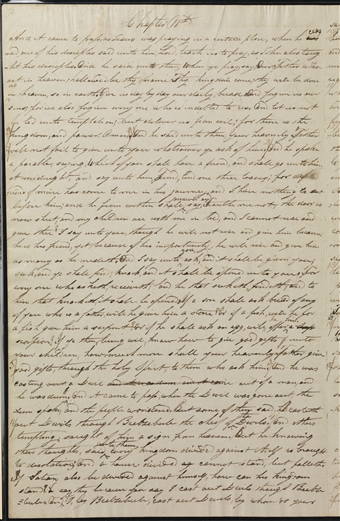 Chapter 11th
And it came to pass as was praying in a certain place, when he
and one of his disciples said unto him Lord teach us to pray as John also taug
ht his disciples And he said unto them, When ye pray, say, Our father who
art in heaven hallowed be thy name Thy kingdom come thy will be done
in heaven, so in earth; Give us day by day our daily bread, And forgive us our
sins; for we also forgive every one who is indebted to us. And let us not
be led into temptation; but deliver us from evil; for thine is the
kingdom, and power Amen And he said unto them Your heavenly Father
will not fail to give unto you whatsoever ye ask of him And he spake
a parable, saying, Which of you shall have a friend, and shall go unto him
at midnight and say unto him friend, lend me three loaves; For a friend
of mine has come to me in his journey, and I have nothing to set
before him; And he from within shall say, trouble me not, the door is
now shut, and my children are with me in bed, and I cannot rise and
give thee I say unto you, though he will not rise and give him because
he is his friend, yet because of his importunity, he will rise and give him
as many as he needeth And I say unto you ask, and it shall be given you;
seek, and ye shall find; knock, and it shall be opened unto you; for
every one who asketh, receiveth; and he that seeketh, findeth; and to
him that knocketh, it shall be opened If a son shall ask bread of any
of you who is a father, will he give him a stone or if a fish, will he for
a fish give him a serpent Or if he shall ask an egg, will
scorpion If ye then, being evil, know how to give good gifts unto
your children, how much more shall your heavenly father give
good gifts, through the holy Spirit, to them who ask him And he was
casting out a Devil out of a man, and
he was dumb, And it came to pass, when the Devil was gone out, the
dumb spake; and the people wondered, But some of them said, He casteth
out Devils through Beelzebub the chief of Devils, And others
tempting, sought of him a sign from heaven, But he knowing
their thoughts, said unto them, every kingdom divided against itself is brought
to desolation; and a house divided cannot stand, but falleth
If Satan also be divided against himself, how can his kingdom
stand say this because you say I cast out Devils through
Beelzebub If I, by Beelzebub, cast out Devils, by whom do your